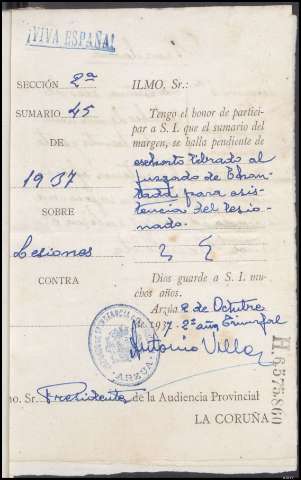 ¡VIVA ESPAÑA!
SECCIÓN 2ª
ILMO, Sr.:
SUMARIO 45
Tengo el honor de partici-
par a S. I. que el sumario del
DE
margen, se halla pendiente de
exhorto librado al
1937
juzgado de
para asis-
SOBRE
tencia del lesio-
nado.
Lesiones
CONTRA
Dios guarde a S. I. mu-
chos años.
Arzúa 2 de Octubre
de 1937. 2º año Triunfal
Antonio Villa
ARZUA
H.6575860
mo. Sr. Presidente de la Audiencia Provincial
LA CORUÑA